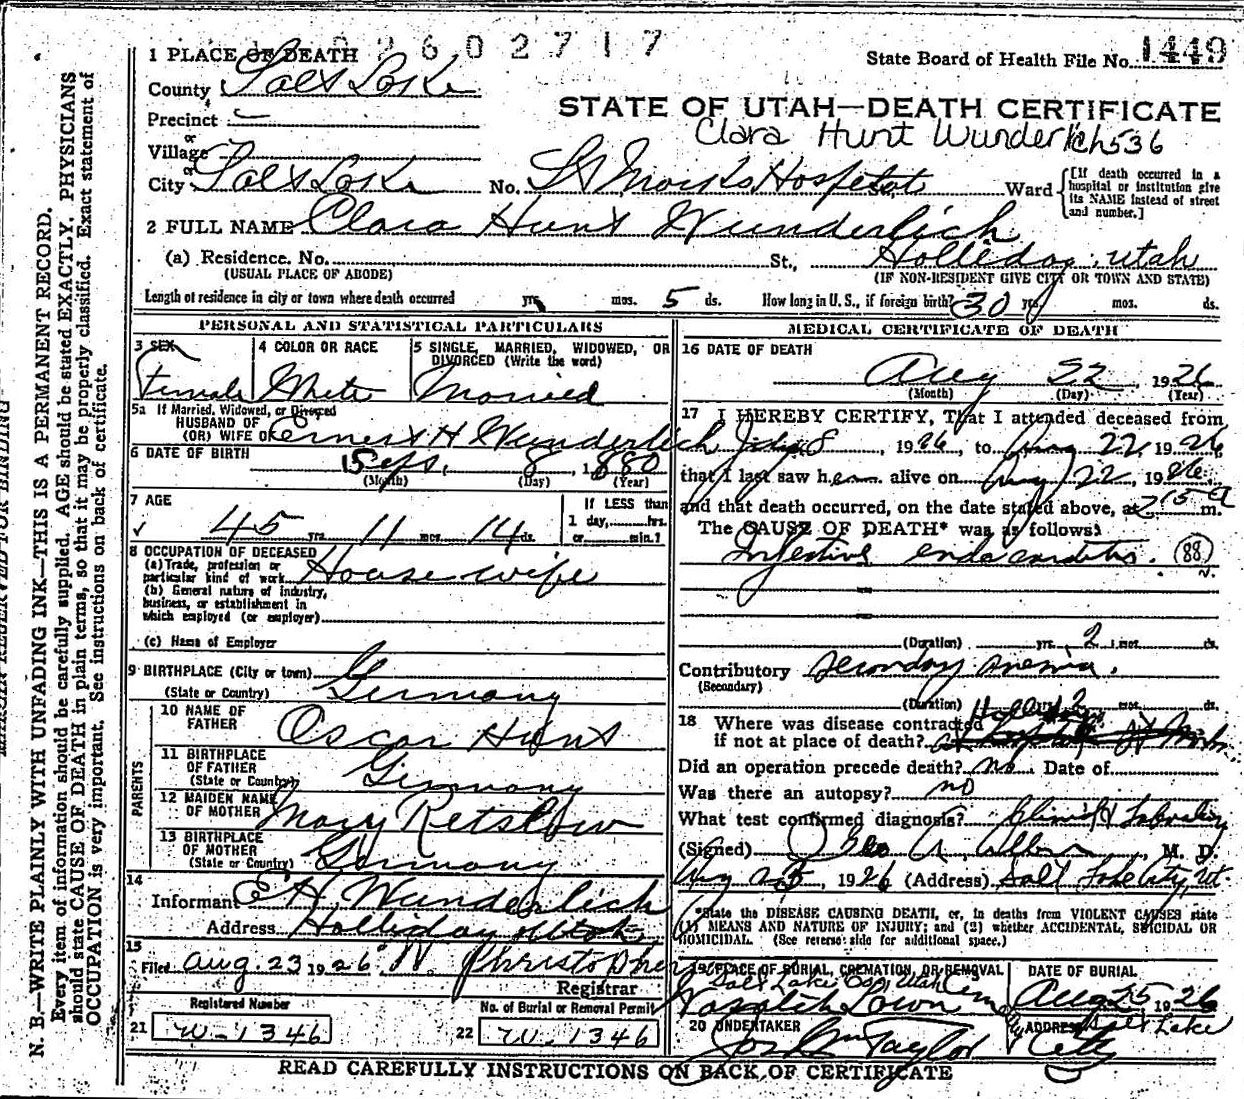 2602717
1 PLACE OF DEATH
State Board of Health File No. 1449
County Salt Lake
STATE OF UTAH—DEATH CERTIFICATE
Precinct
Clara Hunt Wunderlich 536
or
Village
or
City Salt Lake No. St Marks Hospital St., Ward
[If death occurred in a hospital or institution give its NAME instead of street and number.]
2 FULL NAME Clara Hunt Wunderlich
(a) Residence. No. St., Holliday, Utah
(USUAL PLACE OF ABODE) (IF NON-RESIDENT GIVE CITY OR TOWN AND STATE)
Length of residence in city or town where death occurred yrs. mos. 5 ds. How long in U. S., if foreign birth? 30 yrs. mos. ds.
PERSONAL AND STATISTICAL PARTICULARS
3 SEX
Female
4 COLOR OR RACE
White
5 SINGLE, MARRIED, WIDOWED, OR DIVORCED (Write the word)
Married
5a If Married, Widowed, or Divorced
HUSBAND OF
(OR) WIFE OF Ernest H Wunderlich
6 DATE OF BIRTH Sept. 8, 1880
(Month) (Day) (Year)
7 AGE
45 yrs. 11 mos. 14 ds.
If LESS than
1 day, hrs.
or min.?
8 OCCUPATION OF DECEASED
(a) Trade, profession or
particular kind of work Housewife
(b) General nature of industry,
business, or establishment in
which employed (or employer)
(c) Name of Employer
9 BIRTHPLACE (City or town)
(State or Country) Germany
PARENTS
10 NAME OF FATHER Oscar Hunt
11 BIRTHPLACE OF FATHER
(State or Country) Germany
12 MAIDEN NAME OF MOTHER Mary Retslow
13 BIRTHPLACE OF MOTHER
(State or Country) Germany
14
Informant E H Wunderlich
Address Holliday Utah
15
Filed Aug. 23 1926 W Christopher
Registrar
Registered Number
21 W-1346
No. of Burial or Removal Permit
22 W-1346
MEDICAL CERTIFICATE OF DEATH
16 DATE OF DEATH
Aug 22, 1926
(Month) (Day) (Year)
17 I HEREBY CERTIFY, That I attended deceased from
July 8, 1926, to Aug 22, 1926
that I last saw her alive on Aug 22, 1926,
and that death occurred, on the date stated above, at 2 15 A m.
The CAUSE OF DEATH* was as follows:
Infective endocarditis. 88
(Duration) yrs. 2 mos. ds.
Contributory Secondary anemia.
(Secondary)
(Duration) yrs. 2 mos. ds.
18 Where was disease contracted
if not at place of death? Holliday
Did an operation precede death? no Date of
Was there an autopsy? no
What test confirmed diagnosis? Clinical Laboratory
(Signed) Geo A. Allen, M. D.
Aug 23, 1926 (Address) Salt Lake City, Ut.
*State the DISEASE CAUSING DEATH, or, in deaths from VIOLENT CAUSES state
(1) MEANS AND NATURE OF INJURY; and (2) whether ACCIDENTAL, SUICIDAL OR
HOMICIDAL. (See reverse side for additional space.)
19 PLACE OF BURIAL, CREMATION, OR REMOVAL
Salt Lake Co., Utah
Wasatch Lawn Cem
DATE OF BURIAL
Aug 25 1926
20 UNDERTAKER
Jos Wm Taylor
ADDRESS Salt Lake
City
READ CAREFULLY INSTRUCTIONS ON BACK OF CERTIFICATE
MARGIN RESERVED FOR BINDING
N. B.—WRITE PLAINLY WITH UNFADING INK—THIS IS A PERMANENT RECORD.
Every item of information should be carefully supplied. AGE should be stated EXACTLY. PHYSICIANS
should state CAUSE OF DEATH in plain terms, so that it may be properly classified. Exact statement of
OCCUPATION is very important. See instructions on back of certificate.